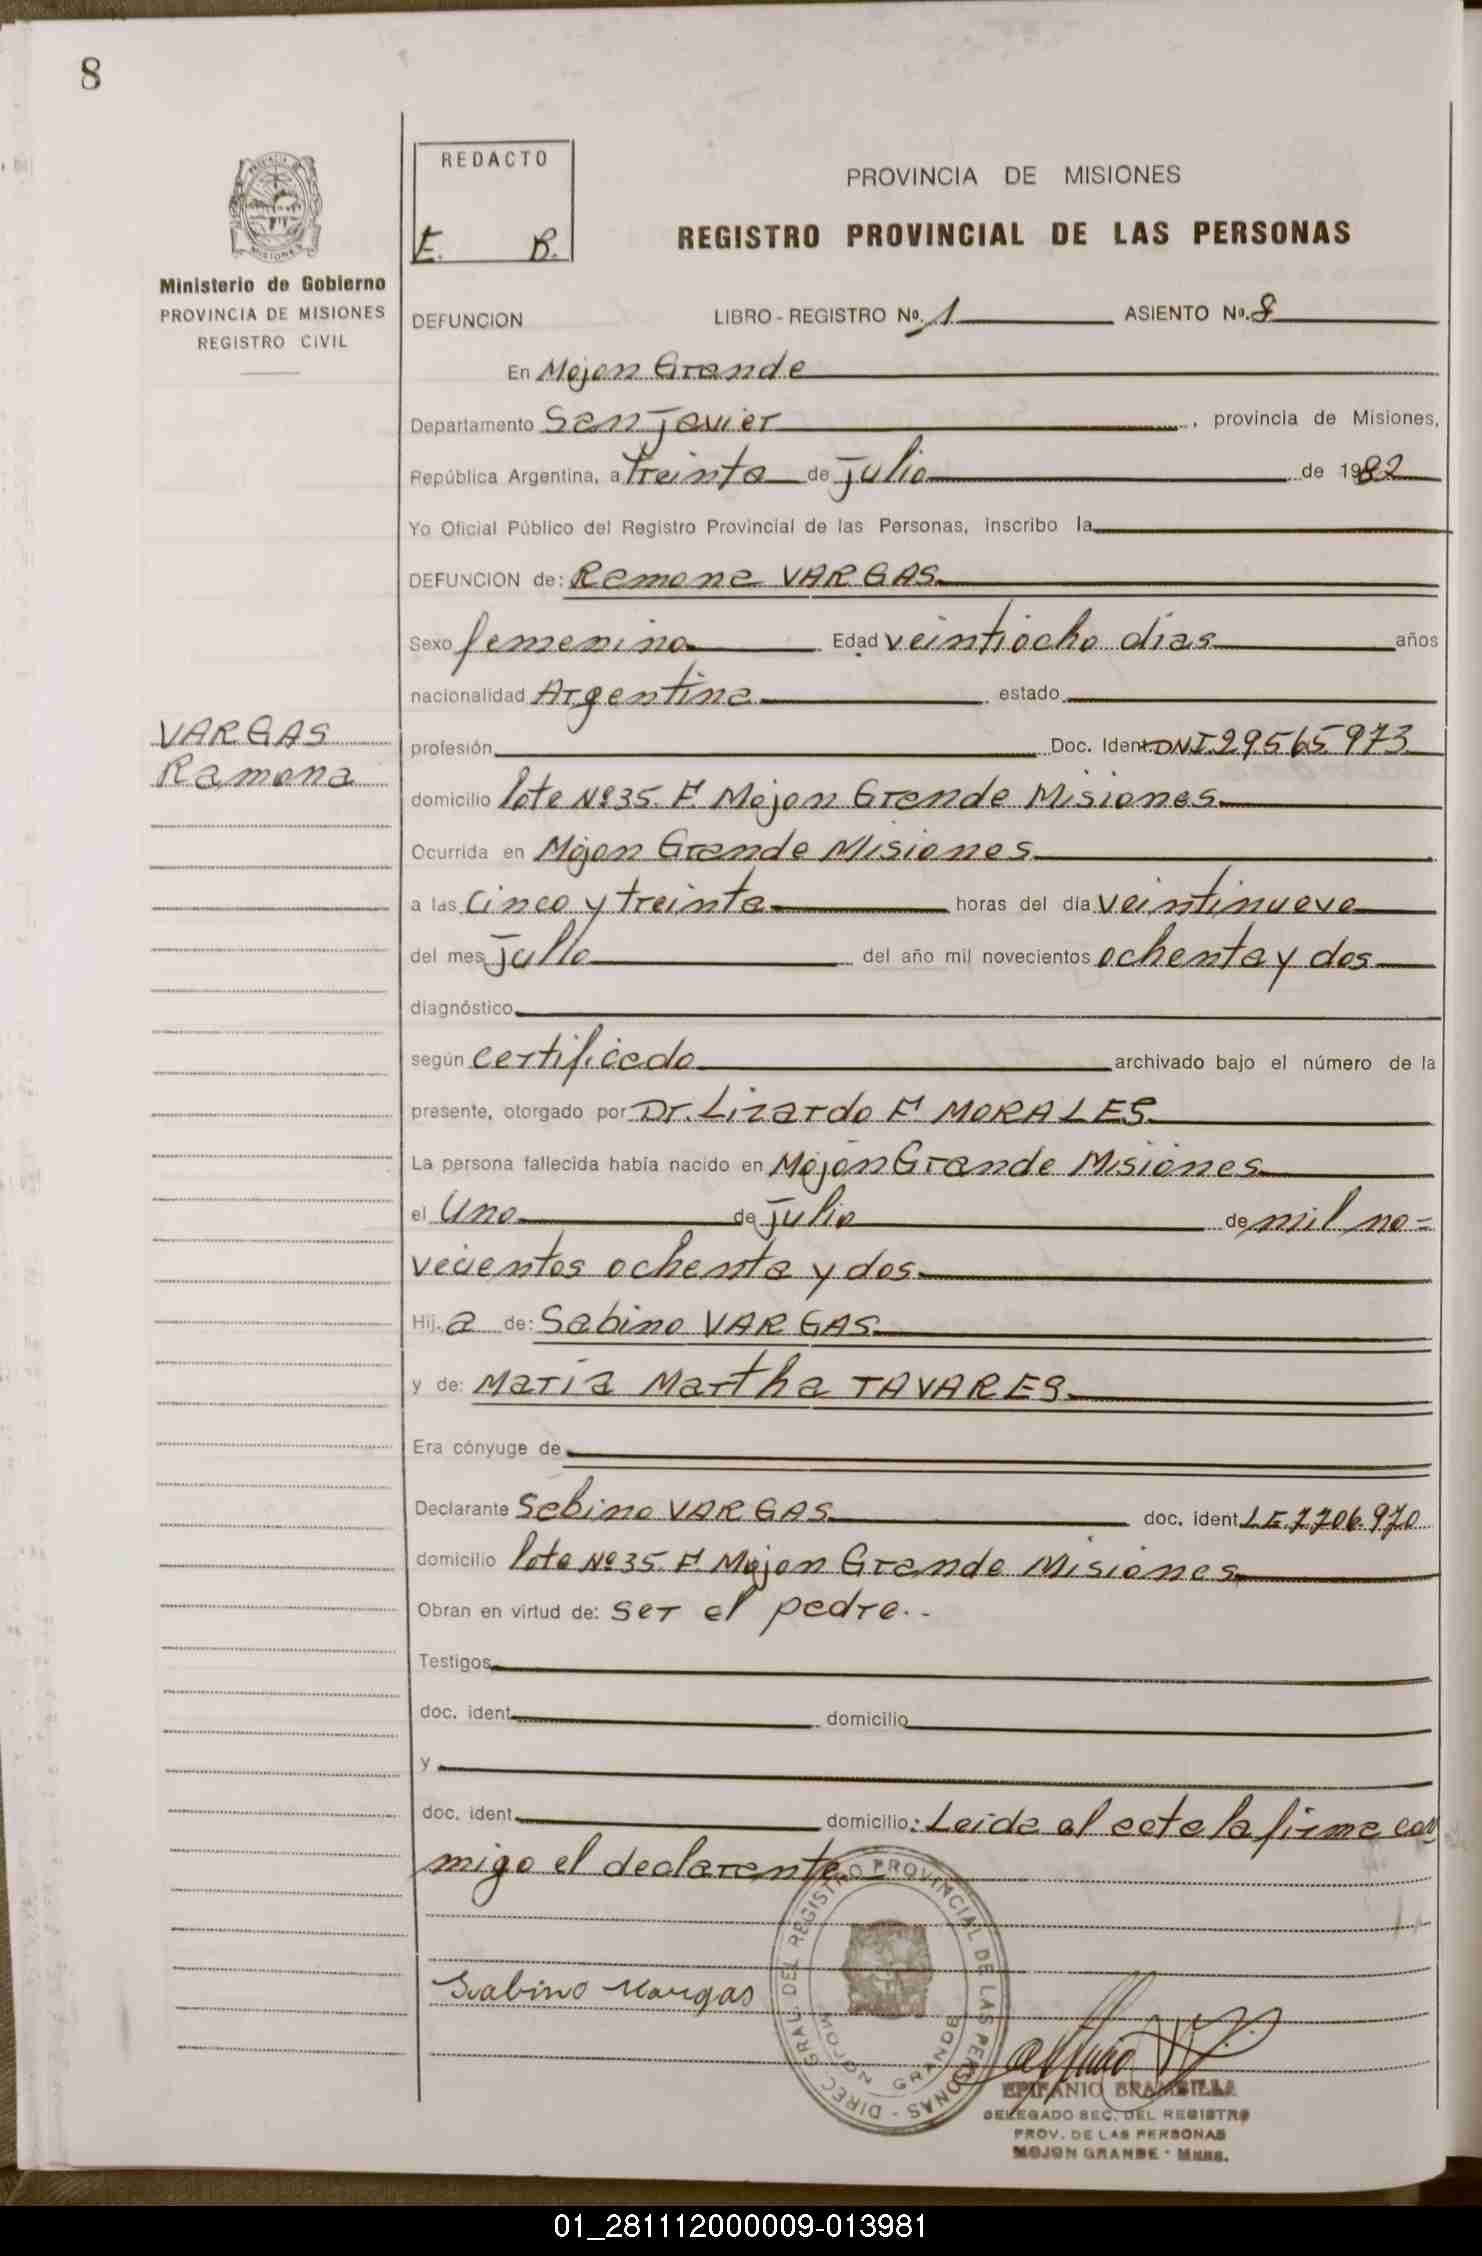 8
REDACTO
E. B.
PROVINCIA DE MISIONES
REGISTRO PROVINCIAL DE LAS PERSONAS
Ministerio de Gobierno
PROVINCIA DE MISIONES
REGISTRO CIVIL
DEFUNCION LIBRO - REGISTRO No. 1 ASIENTO No. 8
En Mojon Grande
Departamento San Javier, provincia de Misiones,
República Argentina, a Treinta de Julio de 1982
Yo Oficial Público del Registro Provincial de las Personas, inscribo la
DEFUNCION de: Ramona VARGAS
Sexo femenino Edad veintiocho días años
nacionalidad Argentina estado
VARGAS
Ramona
profesión Doc. Ident. DNI. 29.565.973
domicilio lote Nº 35. F. Mojon Grande Misiones
Ocurrida en Mojon Grande Misiones
a las cinco y treinta horas del día veintinueve
del mes Julio del año mil novecientos ochenta y dos
diagnóstico
según certificado archivado bajo el número de la
presente, otorgado por Dr. Lizardo F. MORALES
La persona fallecida había nacido en Mojon Grande Misiones
el Uno de Julio de mil no-
vecientos ochenta y dos
Hij. a de: Sabino VARGAS
y de: María Martha TAVARES
Era cónyuge de
Declarante Sabino VARGAS doc. ident. L.E. 7.706.970
domicilio lote Nº 35. F. Mojon Grande Misiones
Obran en virtud de: ser el padre.-
Testigos
doc. ident. domicilio
y
doc. ident. domicilio: Leida el acta la firma con
migo el declarante
Sabino Vargas
DIREC. GRAL. DEL REGISTRO PROVINCIAL DE LAS PERSONAS -
MOJON GRANDE
EPIFANIO BRAMBILLA
DELEGADO SEC. DEL REGISTRO
PROV. DE LAS PERSONAS
MOJON GRANDE - Mnes.
01_281112000009-013981